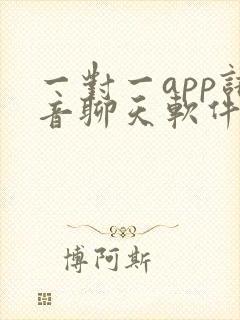 一對一app語
音聊天軟件
博阿斯